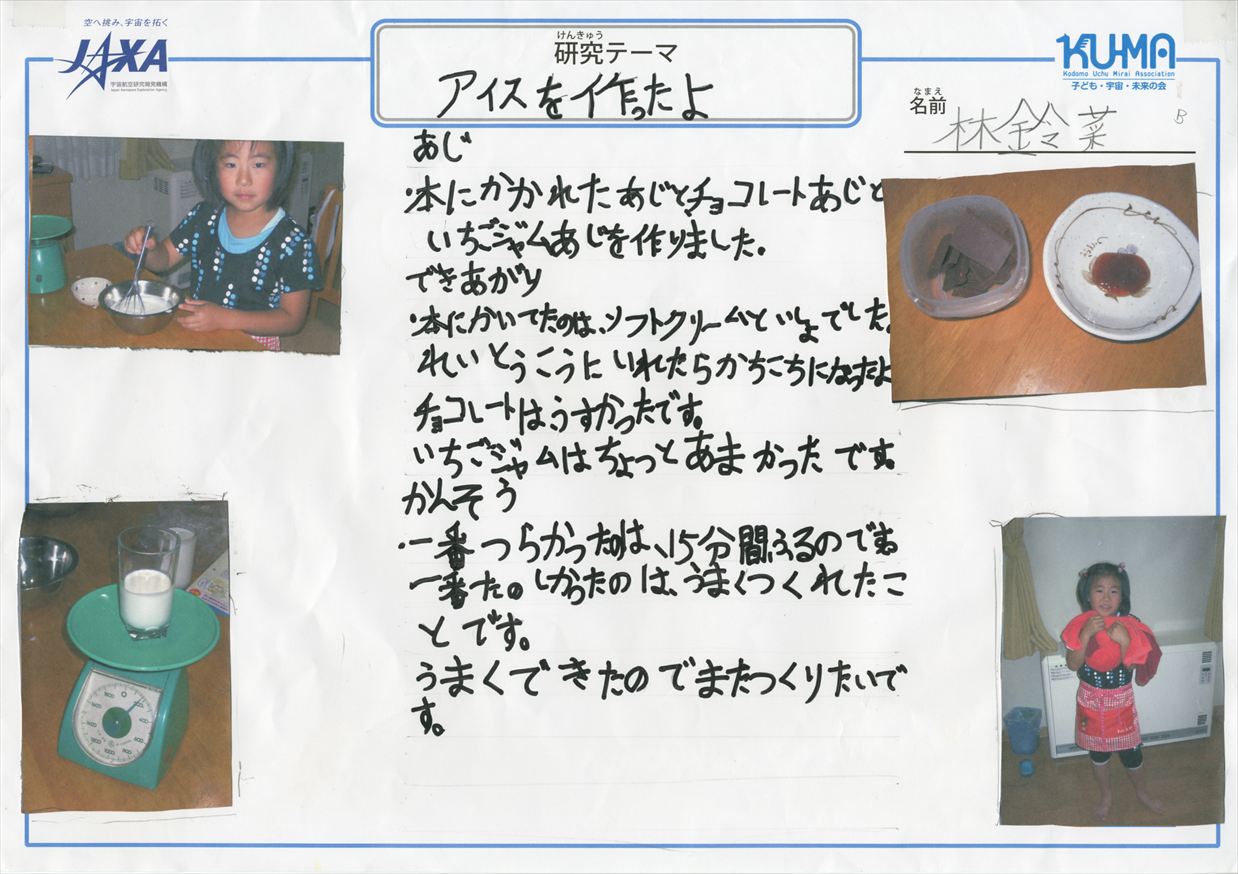 空へ挑み、宇宙を拓く
JAXA
宇宙航空研究開発機構
Japan Aerospace Exploration Agency
けんきゅう
研究テーマ
アイスを作ったよ
KU-MA
Kodomo Uchu Mirai Association
子ども・宇宙・未来の会
なまえ
名前
林鈴菜
B
あじ
・本にかかれたあじとチョコレートあじと
いちごジャムあじを作りました。
できあがり
・本にかいてたのは、ソフトクリームといしょでした。
れいとうこうにいれたらかちこちになったよ
チョコレートは、うすかったです。
いちごジャムはちょっとあまかったです。
かんそう
・一番つらかったのは、15分間ふるのです。
一番たのしかったのは、うまくつくれたこ
とです。
うまくできたのでまたつくりたいで
す。